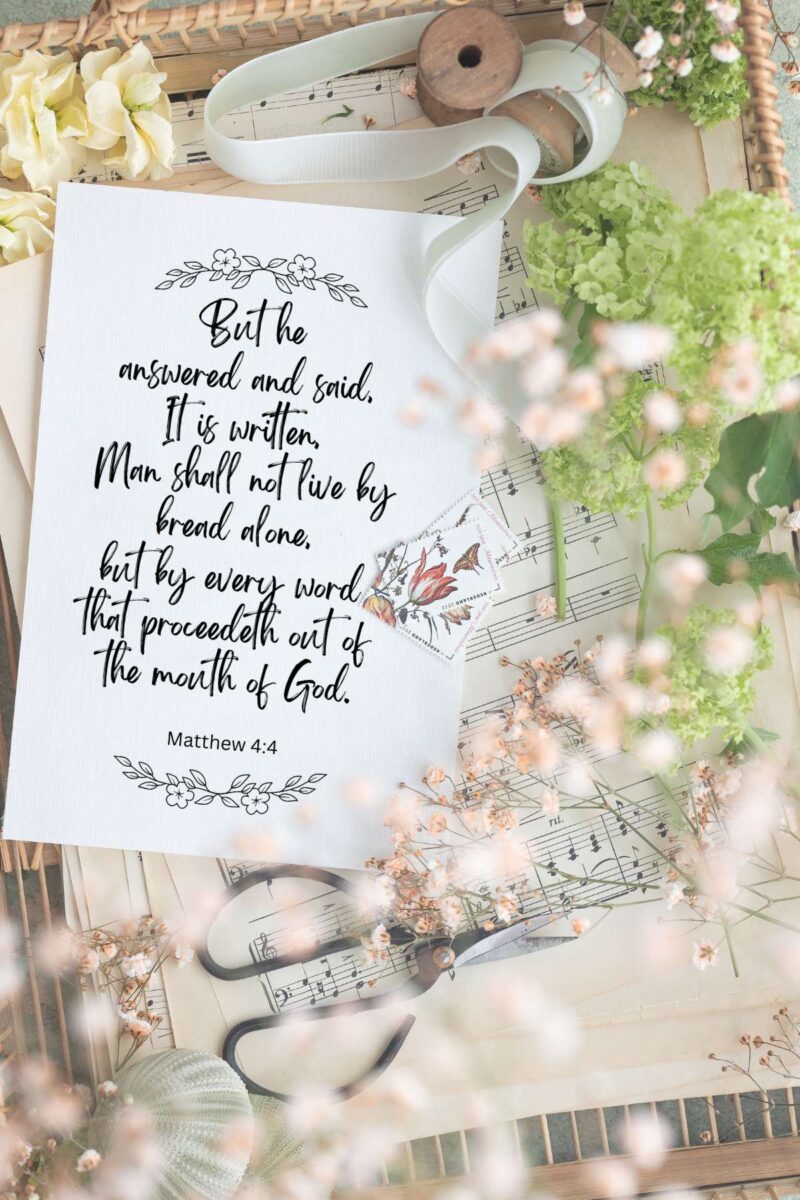 But he
answered and said,
It is written,
Man shall not live by
bread alone,
but by every word
that proceedeth out of
the mouth of God.
Matthew 4:4
NEDERLAND 2002
rit.